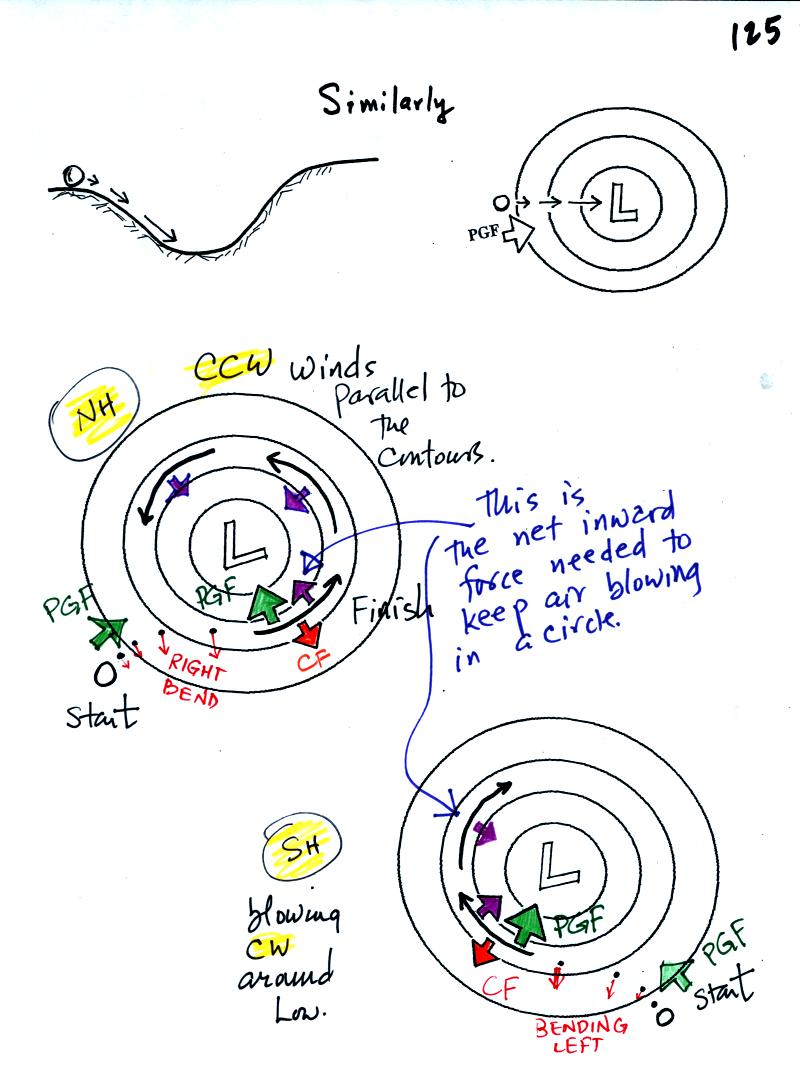 125
Similarly
L
PGF
CCW winds
Parallel to
the
Contours.
NH
L
PGF
PGF
Finish
CF
RIGHT
BEND
Start
This is
the net inward
force needed to
keep air blowing
in a circle.
SH
blowing
CW
around
Low.
L
PGF
CF
PGF
Start
BENDING
LEFT